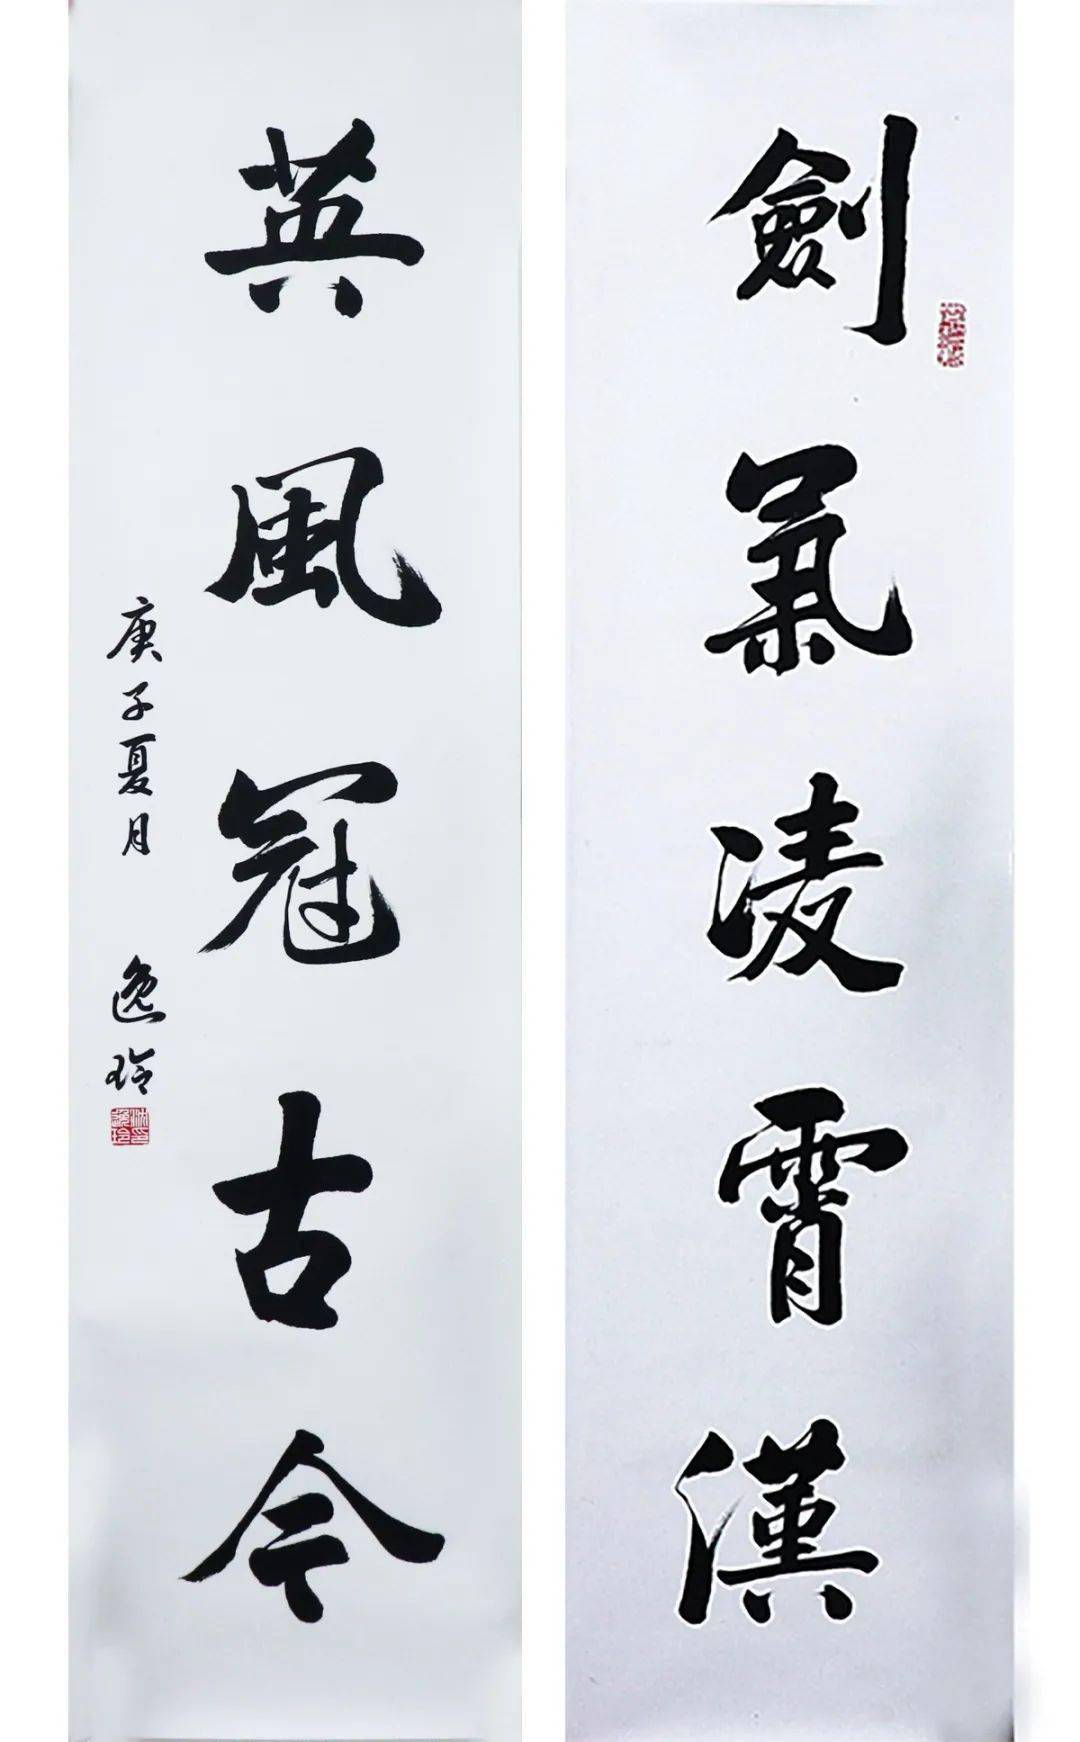 劍氣凌霄漢
英風冠古今
庚子夏月 逸玲